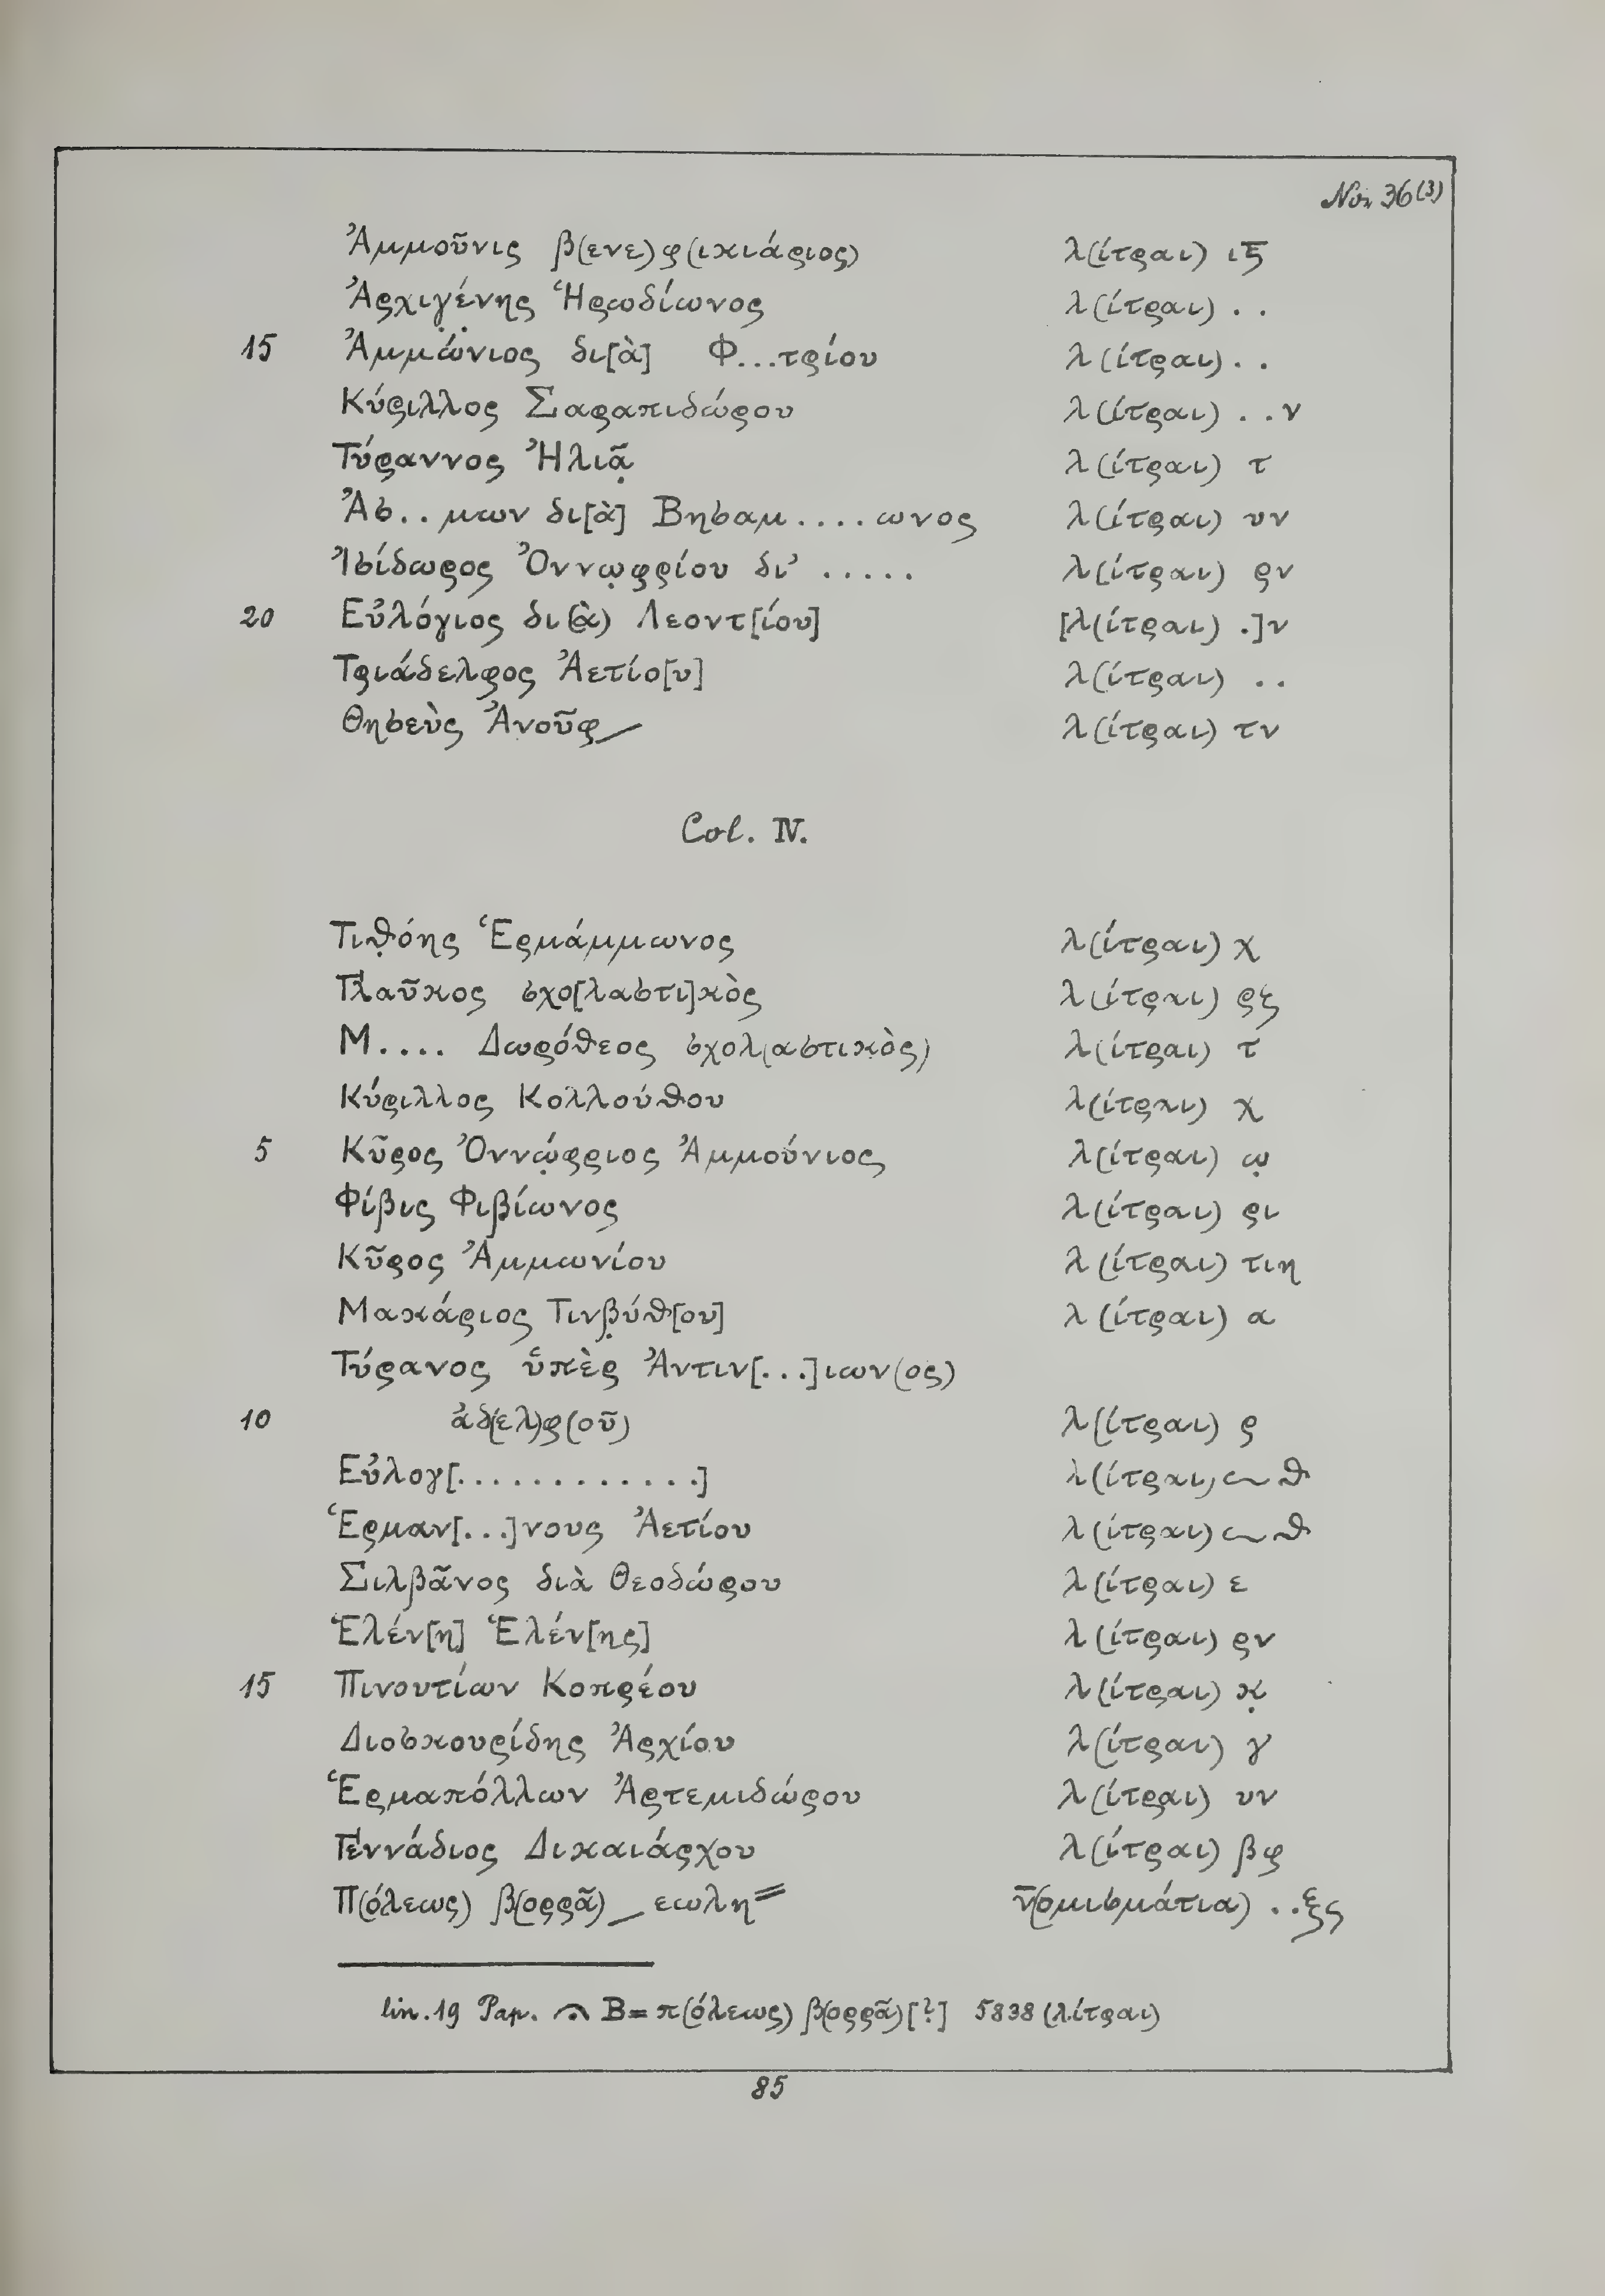 No. 36(3)
Ἀμμοῦνις β(ενε)φ(ικιάριος) λ(ίτραι) ιξ
Ἀρχιγένης Ἡρωδίωνος λ(ίτραι) . .
15 Ἀμμώνιος δι[ὰ] Φ...τρίου λ(ίτραι) . .
Κύριλλος Σαραπιδώρου λ(ίτραι) . . ν
Τύραννος Ἠλιᾷ λ(ίτραι) τ
Ἀσ..μων δι[ὰ] Βησαμ....ωνος λ(ίτραι) υν
Ἰσίδωρος Ὀννω̣φρίου δι' ..... λ(ίτραι) ρν
20 Εὐλόγιος δι(ὰ) Λεοντ[ίου] [λ(ίτραι) .]ν
Τριάδελφος Ἀετίο[υ] λ(ίτραι) . .
Θησεὺς Ἀνοῦφ╱ λ(ίτραι) τν
Col. IV.
Τιθ̣όης Ἑρμάμμωνος λ(ίτραι) χ
Γλαῦκος σχο[λαστι]κὸς λ(ίτραι) ρξ
Μ.... Δωρόθεος σχολ(αστικὸς) λ(ίτραι) τ
Κύριλλος Κολλούθου λ(ίτραι) χ
5 Κῦρος Ὀννώ̣φριος Ἀμμούνιος λ(ίτραι) ω̣
Φίβις Φιβίωνος λ(ίτραι) ρι
Κῦρος Ἀμμωνίου λ(ίτραι) τιη
Μακάριος Τινβ̣ύθ[ου] λ(ίτραι) α
Τύρανος ὕπὲρ Ἀντιν[...]ιων(ος)
10 ἀδ(ελ)φ(οῦ) λ(ίτραι) ρ
Εὐλογ[............] λ(ίτραι) 𐅵 θ
Ἑρμαν[...]νους Ἀετίου λ(ίτραι) 𐅵 θ
Σιλβᾶνος διὰ Θεοδώρου λ(ίτραι) ε
Ἑλέν[η] Ἑλέν[ης] λ(ίτραι) ρν
15 Πινουτίων Κοπρέου λ(ίτραι) κ̣
Διοσκουρίδης Ἀρχίου λ(ίτραι) γ
Ἑρμαπόλλων Ἀρτεμιδώρου λ(ίτραι) υν
Γεννάδιος Δικαιάρχου λ(ίτραι) βφ
Π(όλεως) β(ορρᾶ)╱ εωλη// ν̄(ομισμάτια) ..ξς
lin. 19 Pap. Β= π(όλεως) β(ορρᾶ) [?] 5838 (λίτραι)
85